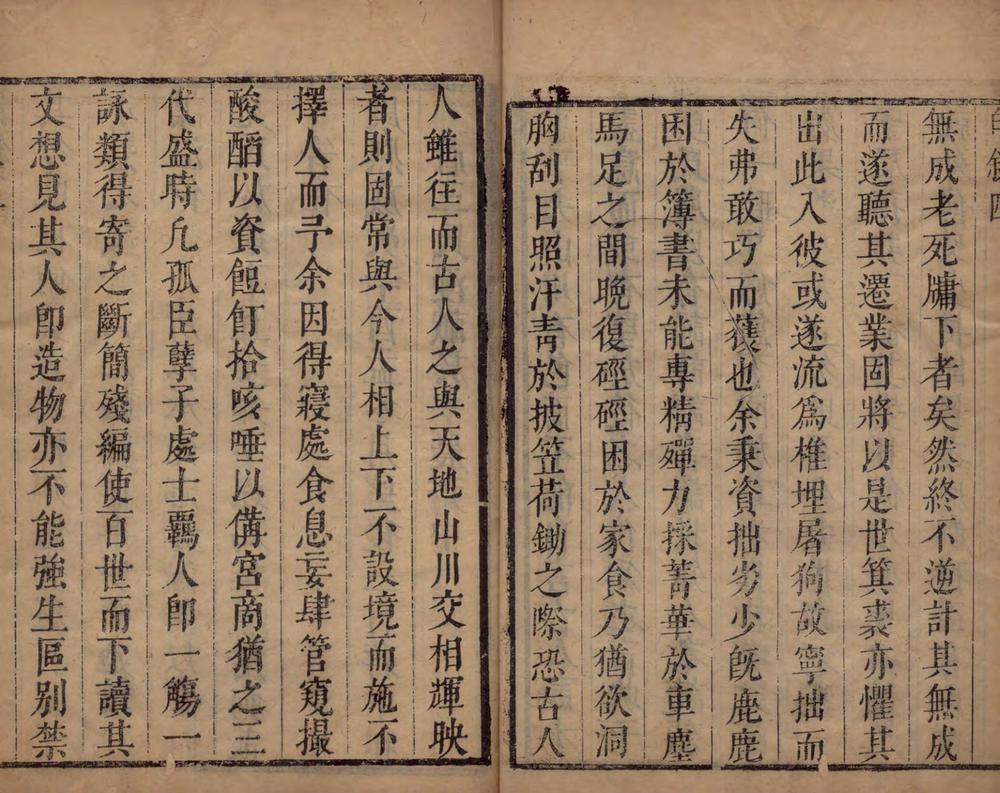 無成老死牖下者矣然終不逆計其無成
而遂聽其遷業固將以是世箕裘亦懼其
出此入彼或遂流爲椎埋屠狗故寧拙而
失弗敢巧而獲也余秉資拙劣少旣鹿鹿
困於簿書未能專精殫力採菁華於車塵
馬足之間晚復硜硜困於家食乃猶欲洞
胸刮目照汗青於披笠荷鋤之際恐古人
人雖往而古人之與天地山川交相輝映
者則固常與今人相上下不設境而施不
擇人而予余因得寢處食息妄肆管窺撮
酸醕以資餖飣拾咳唾以備宮商猶之三
代盛時凡孤臣孽子處士羈人卽一觴一
詠類得寄之斷簡殘編使百世而下讀其
文想見其人卽造物亦不能強生區別禁